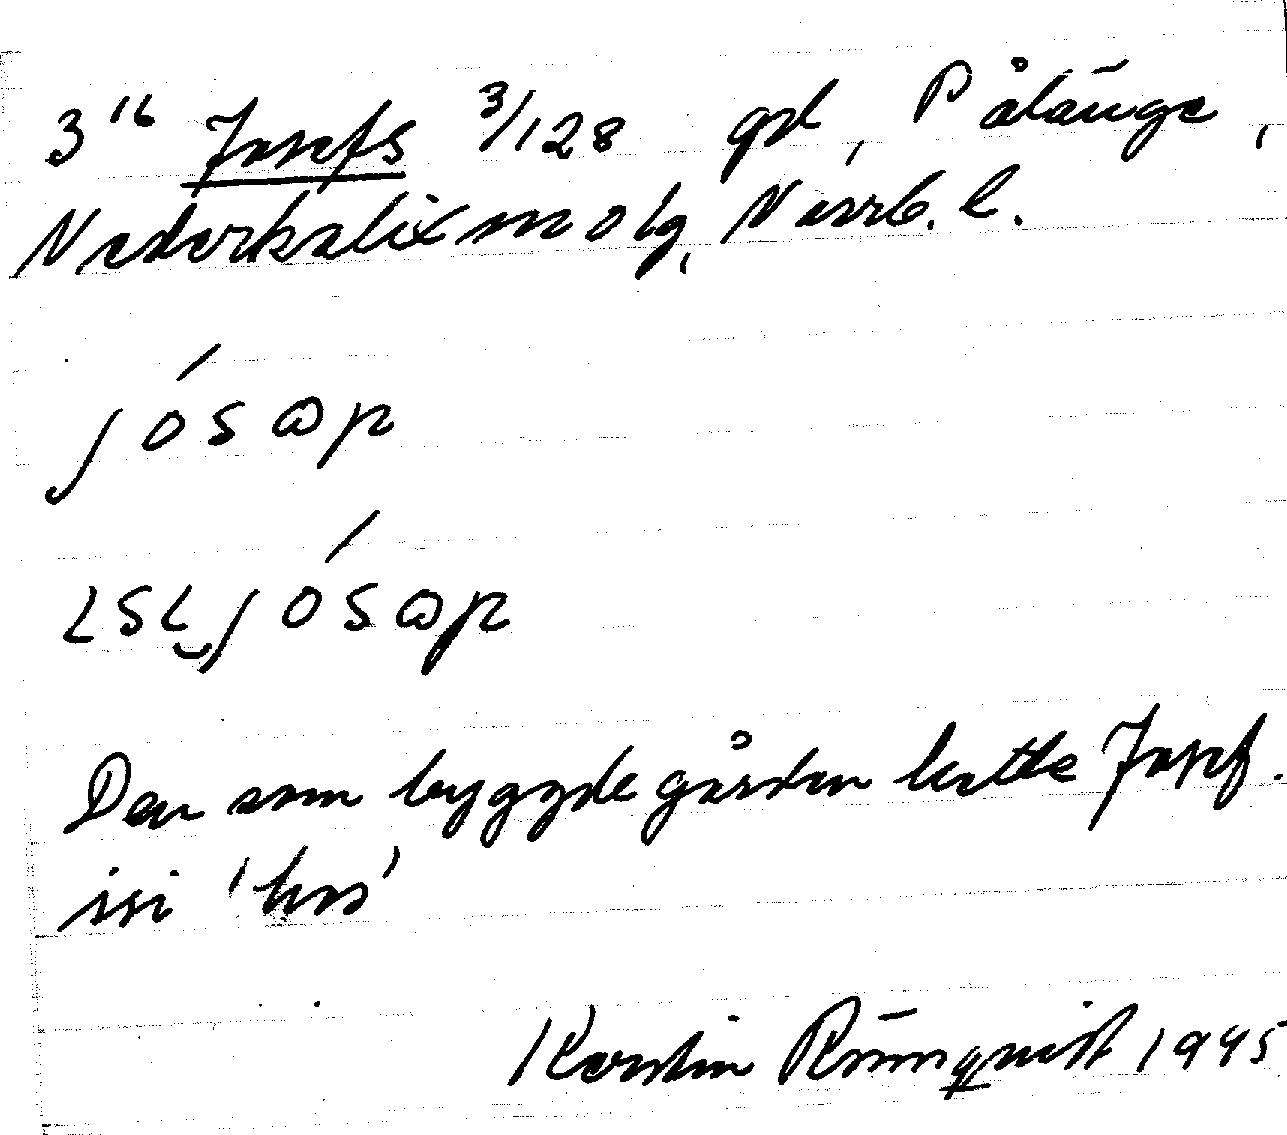 3¹⁶ Josefs 3/128 gd, Pålänge,
Nederkalix sn o tg, Norrb. l.
jósəp
ɩsɩ‿jósəp
Den som byggde gården hette Josef.
isi 'hos'
Kerstin Rönnqvist 1945